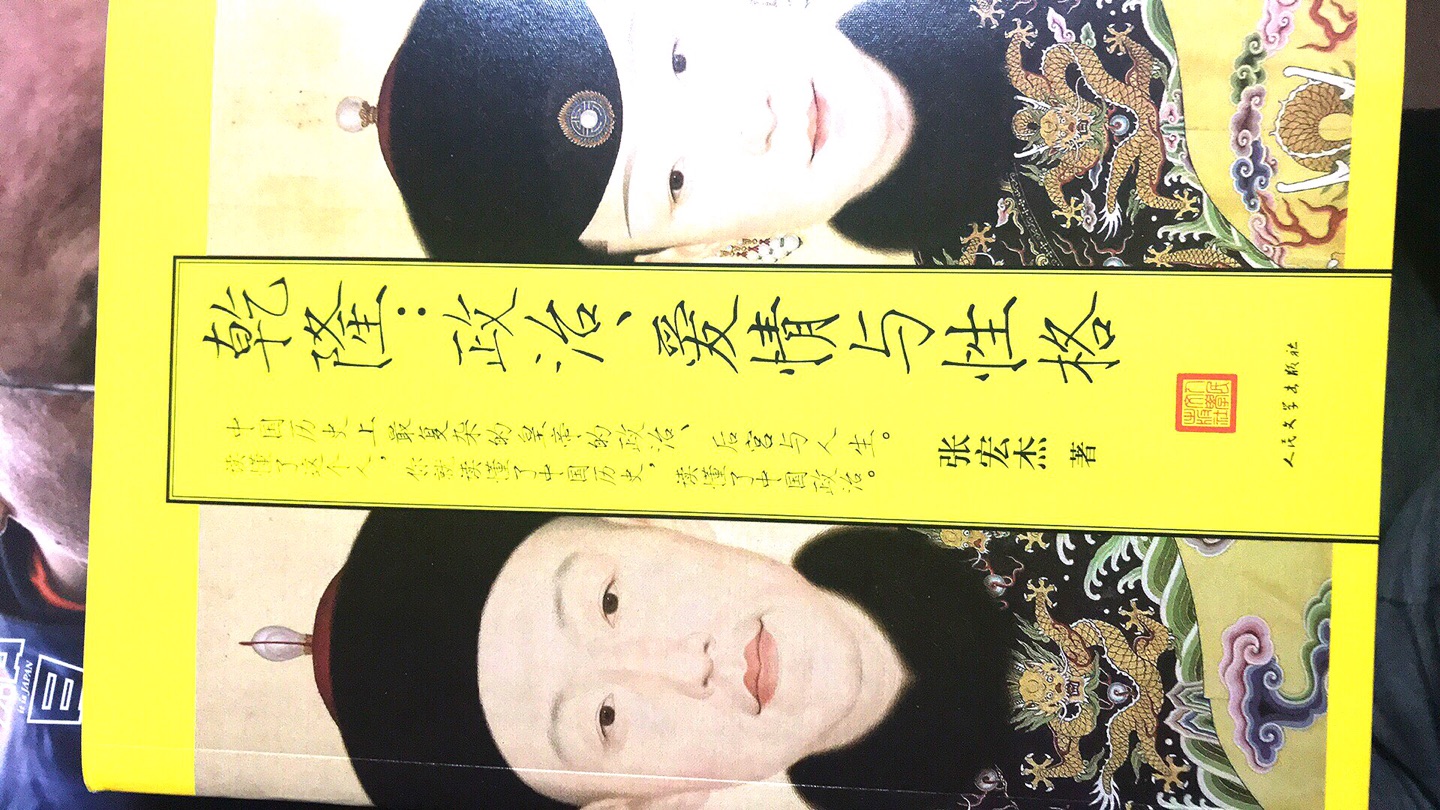 乾隆：政治、爱情与性格
中国历史上最复杂的皇帝的政治、后宫与人生。
读懂了这个人，你就读懂了中国历史，读懂了中国政治。
张宏杰 著
人民文学出版社
JAPAN